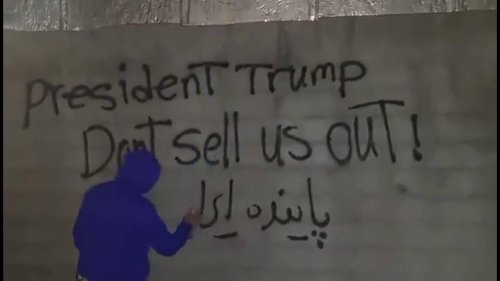 President Trump
Dont sell us OUT!
پاینده ایرا